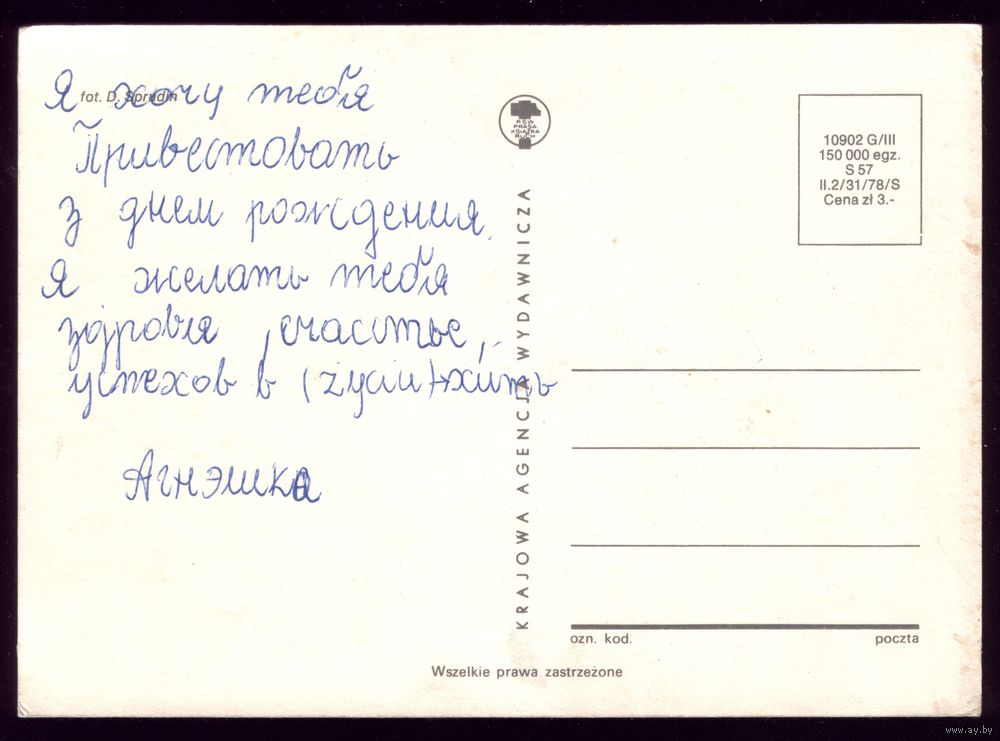 Я хочу тебя
fot. D. Sprudin
Привествовать
з днем рождения
Я желать тебя
здровя, счастье,
успехов в (życiu) жить
Агнэшка
PSW
PRASA
KSIĄŻKA
RUCH
KRAJOWA AGENCJA WYDAWNICZA
10902 G/III
150 000 egz.
S 57
II.2/31/78/S
Cena zł 3.-
ozn. kod.
poczta
Wszelkie prawa zastrzeżone
www.ay.by